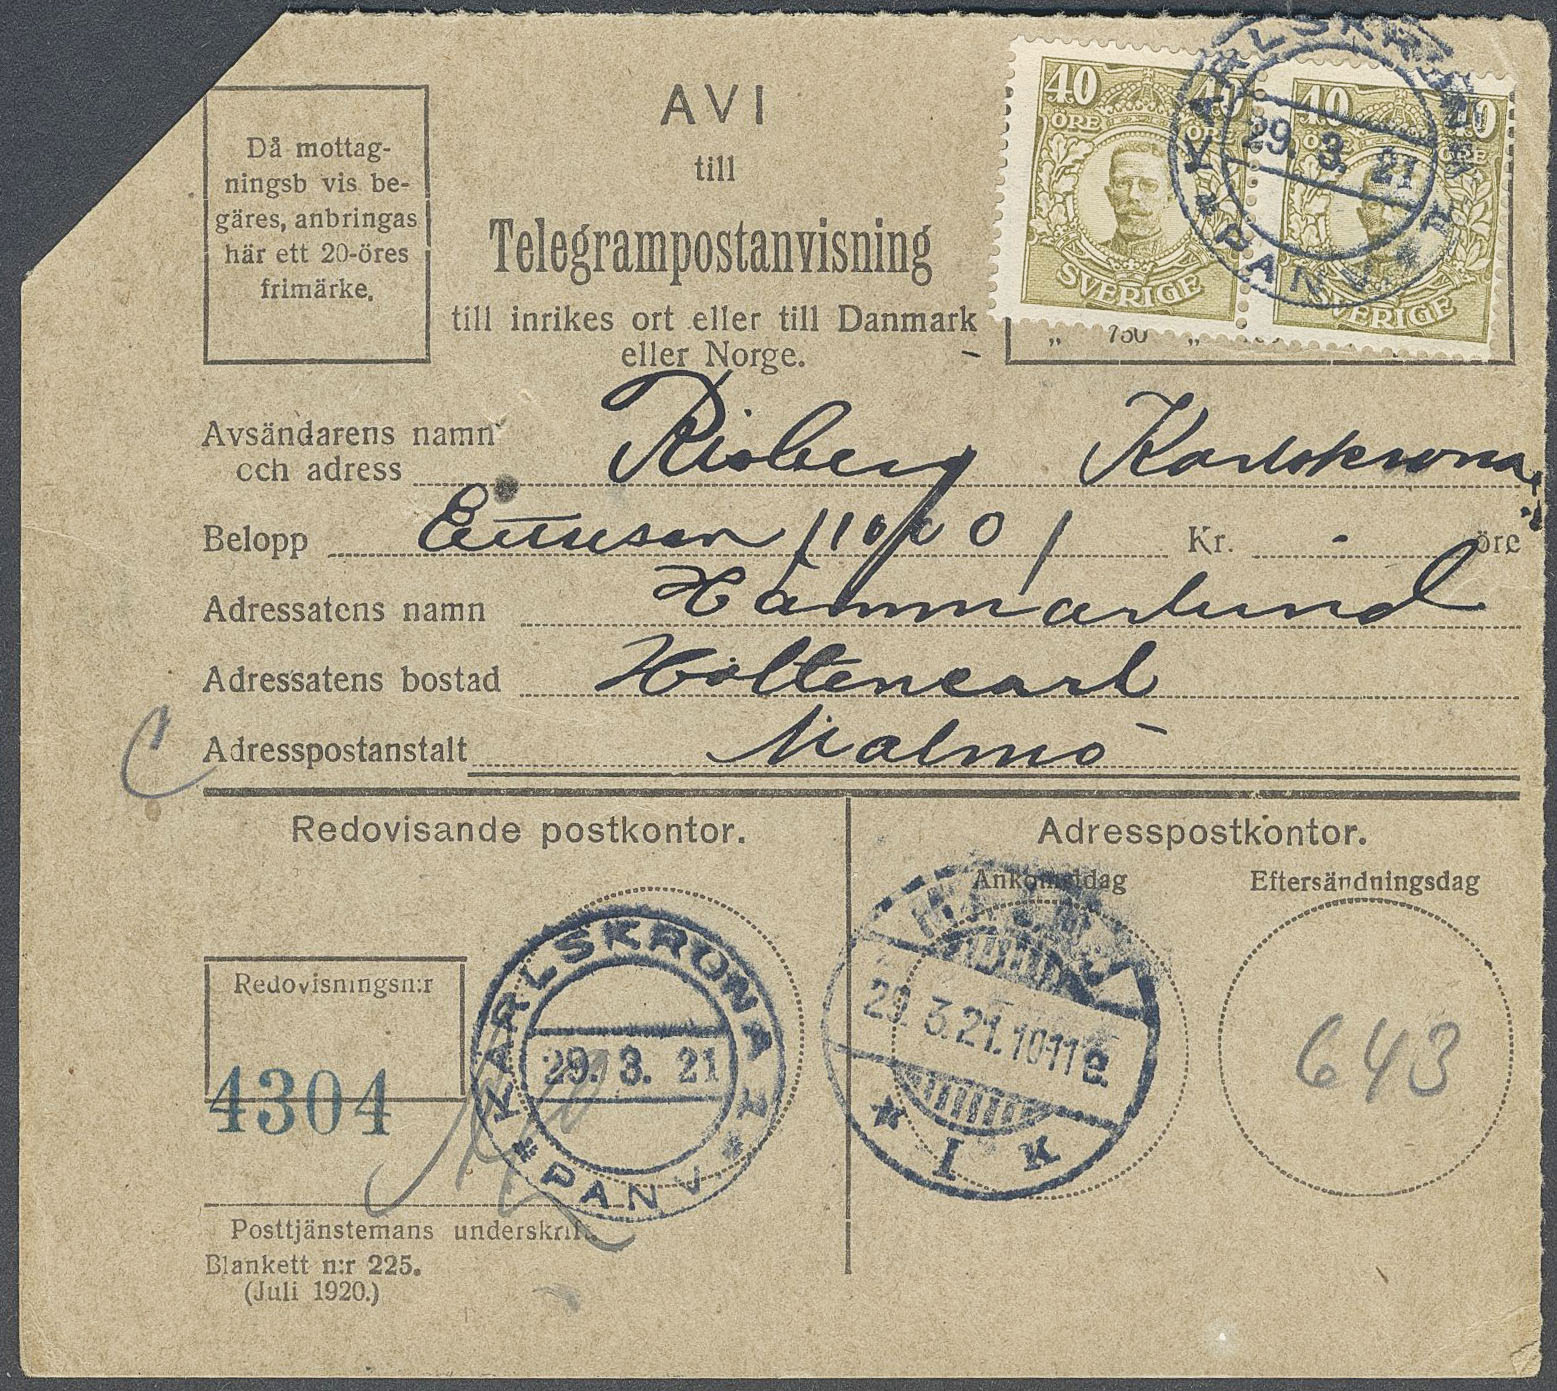 AVI
till
Telegrampostanvisning
till inrikes ort eller till Danmark
eller Norge.
Då mottag-
ningsb vis be-
gäres, anbringas
här ett 20-öres
frimärke.
40 40
ÖRE ÖRE
SVERIGE
40 40
ÖRE ÖRE
SVERIGE
29. 3. 21
PANV
„ 750 „
Avsändarens namn Risberg Karlskrona
och adress
Belopp /1000/ Kr. - öre
Adressatens namn Hammarlund
Adressatens bostad
Adresspostanstalt Malmö
Redovisande postkontor.
Adresspostkontor.
Ankomstdag
Eftersändningsdag
Redovisningsn:r
4304
KARLSKRONA 1
29. 3. 21
PANV.
29. 3.21.10-11 e.
1 K
643
Posttjänstemans underskrift.
Blankett n:r 225.
(Juli 1920.)